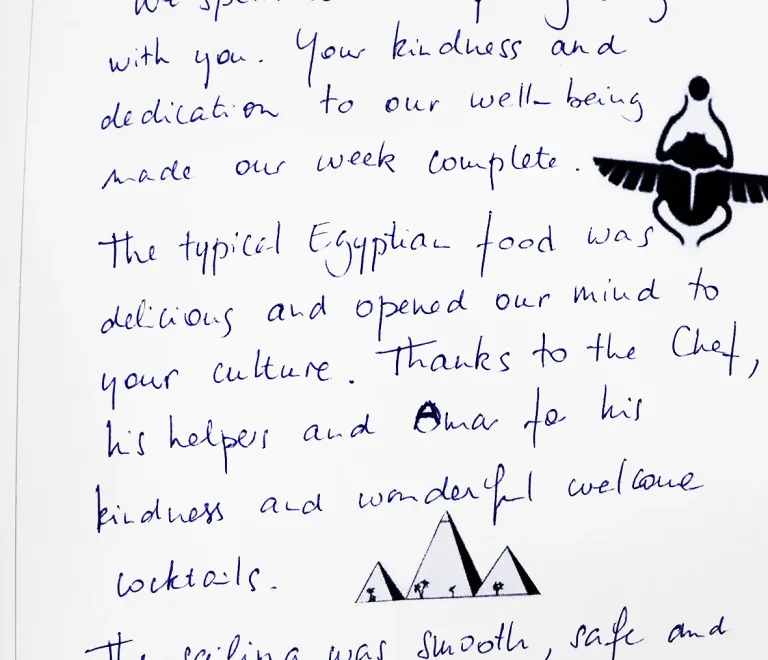 We
with you. Your kindness and
dedication to our well-being
made our week complete.
The typical Egyptian food was
delicious and opened our mind to
your culture. Thanks to the Chef,
his helpers and Omar for his
kindness and wonderful welcome
cocktails.
The sailing was smooth, safe and